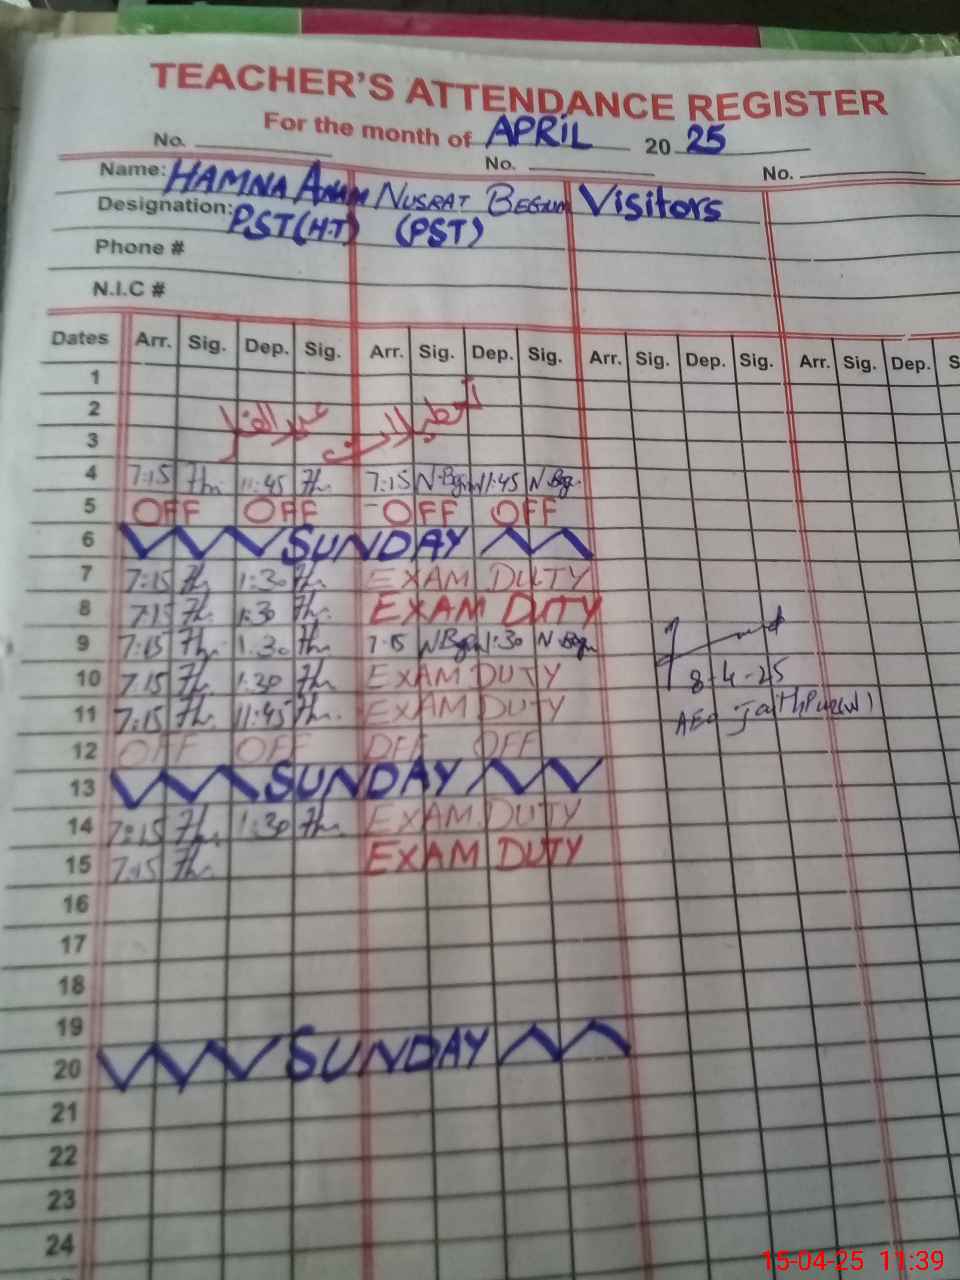 TEACHER'S ATTENDANCE REGISTER
For the month of APRIL 2025
No. No. No.
Name: HAMNA ANAM NUSRAT BEGUM Visitors
Designation: PST(H.T) (PST)
Phone #
N.I.C #
Dates Arr. Sig. Dep. Sig. Arr. Sig. Dep. Sig. Arr. Sig. Dep. Sig. Arr. Sig. Dep. S
1
2 عید الفطر تعطیلات
3
4 7:15 11:45 7:15 N.Bgm 11:45 N.Bgm
5 OFF OFF OFF OFF
6 SUNDAY
7 7:15 1:30 EXAM DUTY
8 7:15 1:30 EXAM DUTY
9 7:15 1:30 7:15 N Bgm 1:30 N Bgm
10 7:15 1:30 EXAM DUTY 8-4-25
11 7:15 11:45 EXAM DUTY AEO
12 OFF OFF OFF OFF
13 SUNDAY
14 7:15 1:30 EXAM DUTY
15 7:15 EXAM DUTY
16
17
18
19
20 SUNDAY
21
22
23
24
15-04-25 11:39